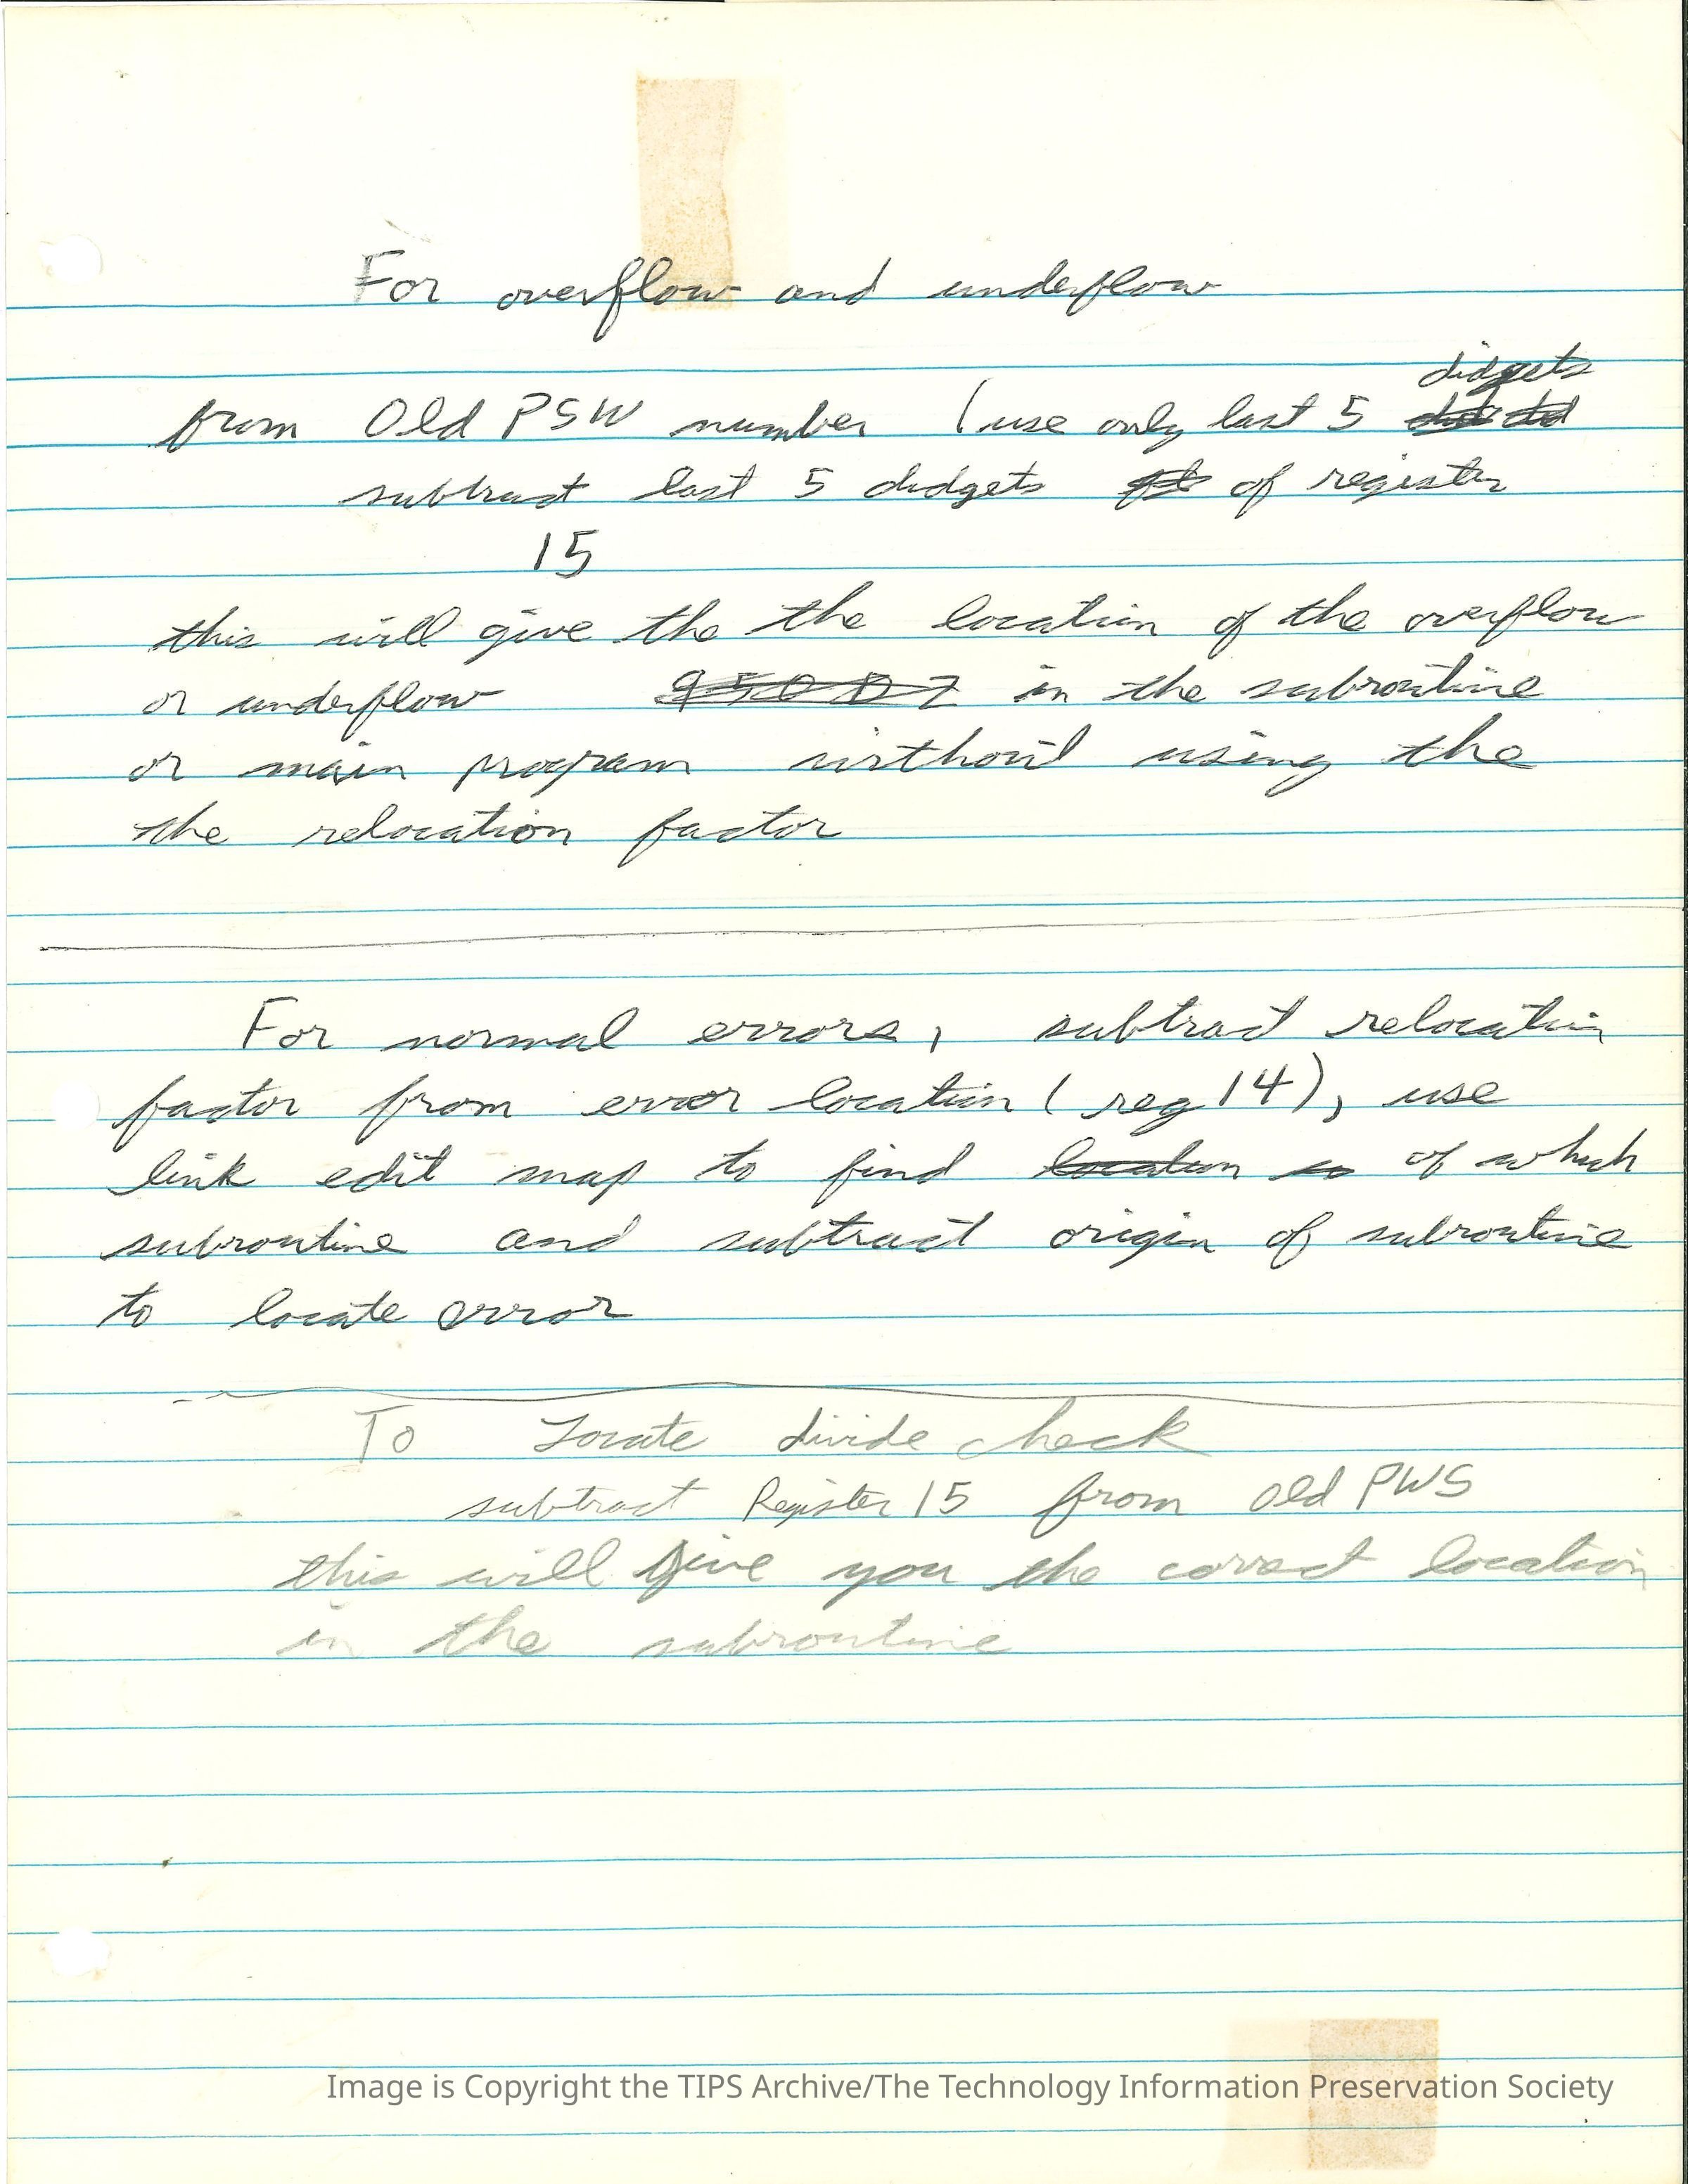 For overflow and underflow
didgets
from Old PSW number (use only last 5
subtract last 5 didgets of register
15
this will give the the location of the overflow
or underflow 95007 in the subroutine
or main program without using the
the relocation factor
For normal errors, subtract relocation
factor from error location (reg 14), use
link edit map to find location in of which
subroutine and subtract origin of subroutine
to locate error
To Locate divide check
subtract Register 15 from old PWS
this will give you the correct location
in the subroutine
Image is Copyright the TIPS Archive/The Technology Information Preservation Society